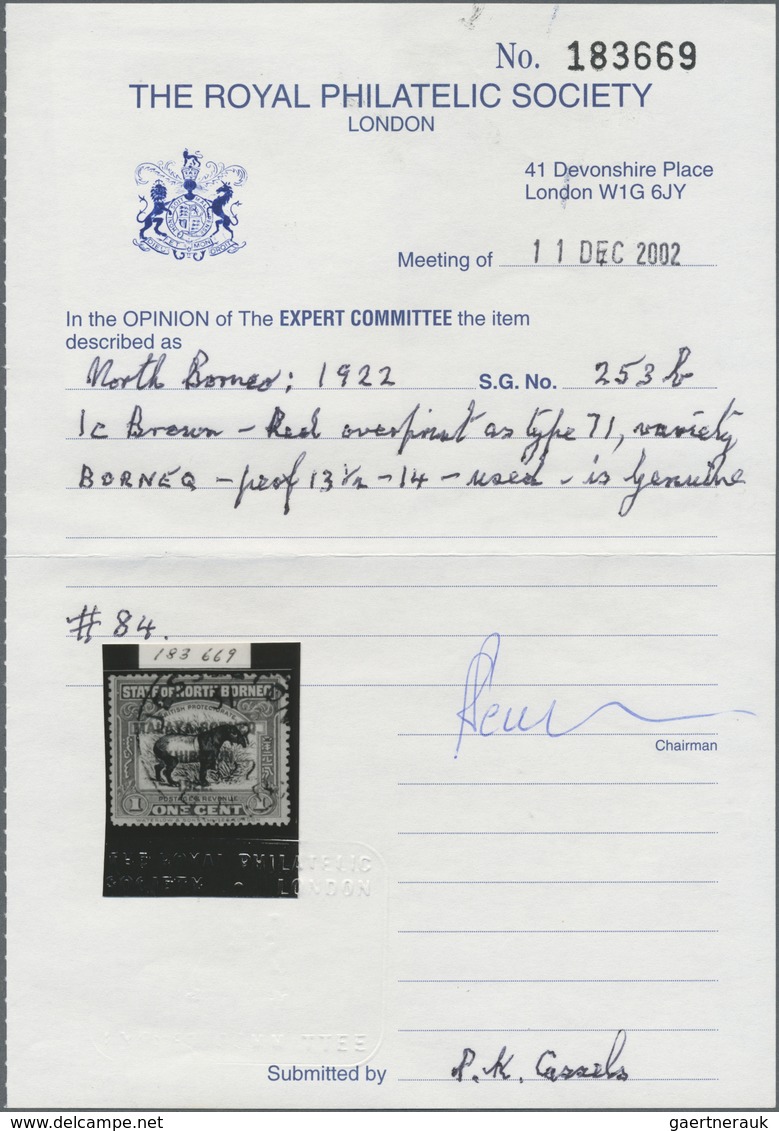 No. 183669
THE ROYAL PHILATELIC SOCIETY
LONDON
41 Devonshire Place
London W1G 6JY
DIEU ET MON DROIT
Meeting of 11 DEC 2002
In the OPINION of The EXPERT COMMITTEE the item
described as
North Borneo; 1922 S.G. No. 253 b
1c Brown - Red overprint as type 71, variety
BORNEQ - perf 13½ - 14 - used - is genuine
# 84.
183 669
STATE OF NORTH BORNEO
BRITISH PROTECTORATE
POSTAGE & REVENUE
1 ONE CENT 1
Chairman
THE ROYAL PHILATELIC
SOCIETY - LONDON
Submitted by P. K. Cassels
gaertnerauk